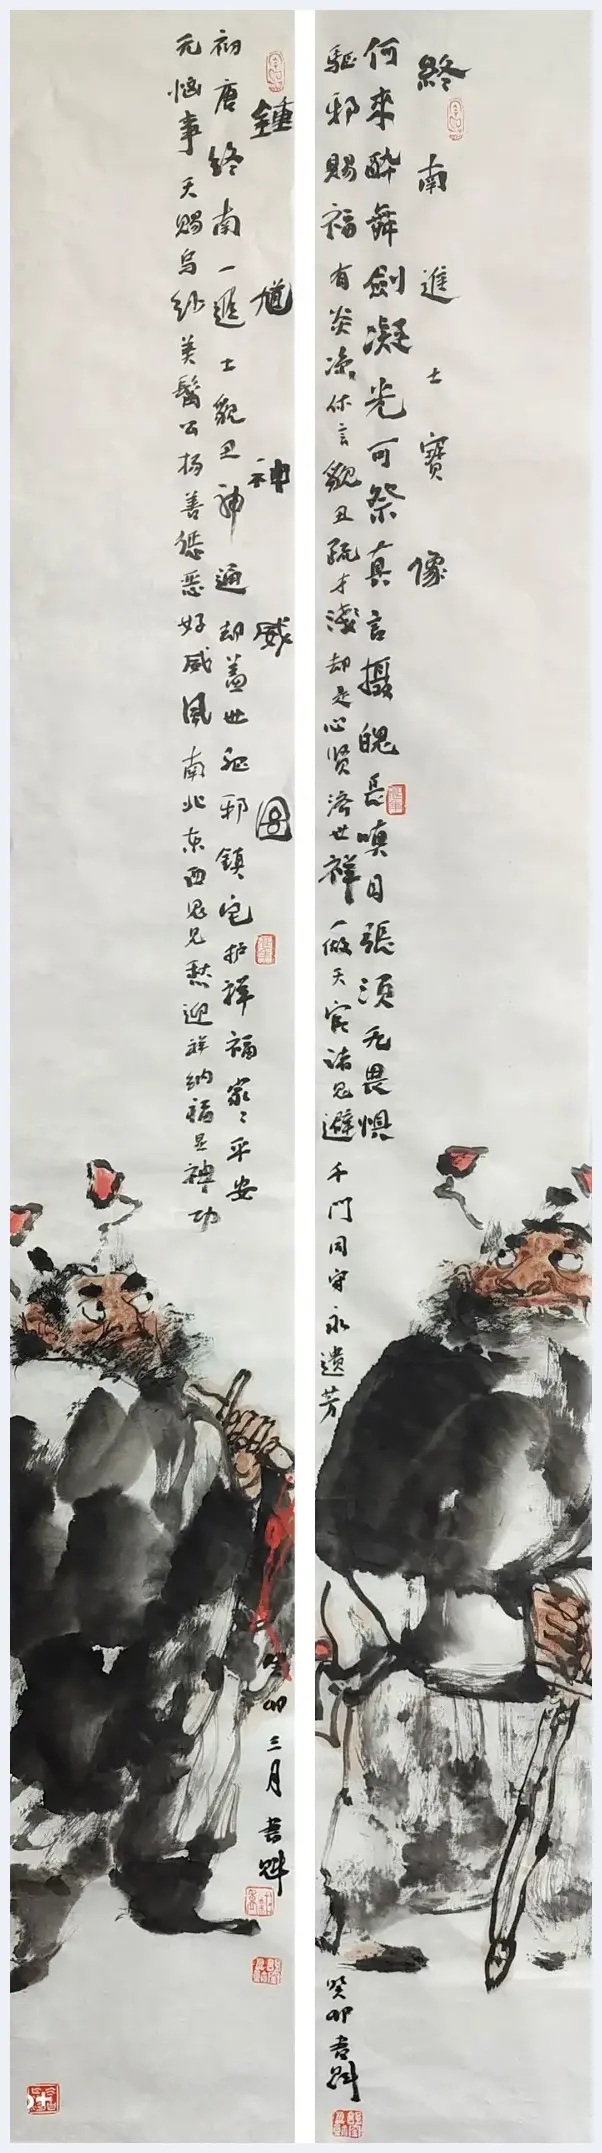 終南進士寶像
何來醉舞劍凝光可祭真言攝魄長嗔目張須无畏惧
驅邪賜福有炎凉休言貌丑疏才淺却是心賢濟世祥一做天官諸鬼避千門同守永遺芳
癸卯
鍾馗神威圖
初唐終南一進士貌丑神通却蓋世驱邪鎮宅护祥福家々平安
无恼事天賜烏紗美髯公揚善懲恶好威風南北东西鬼見愁迎祥納福显神功
癸卯三月